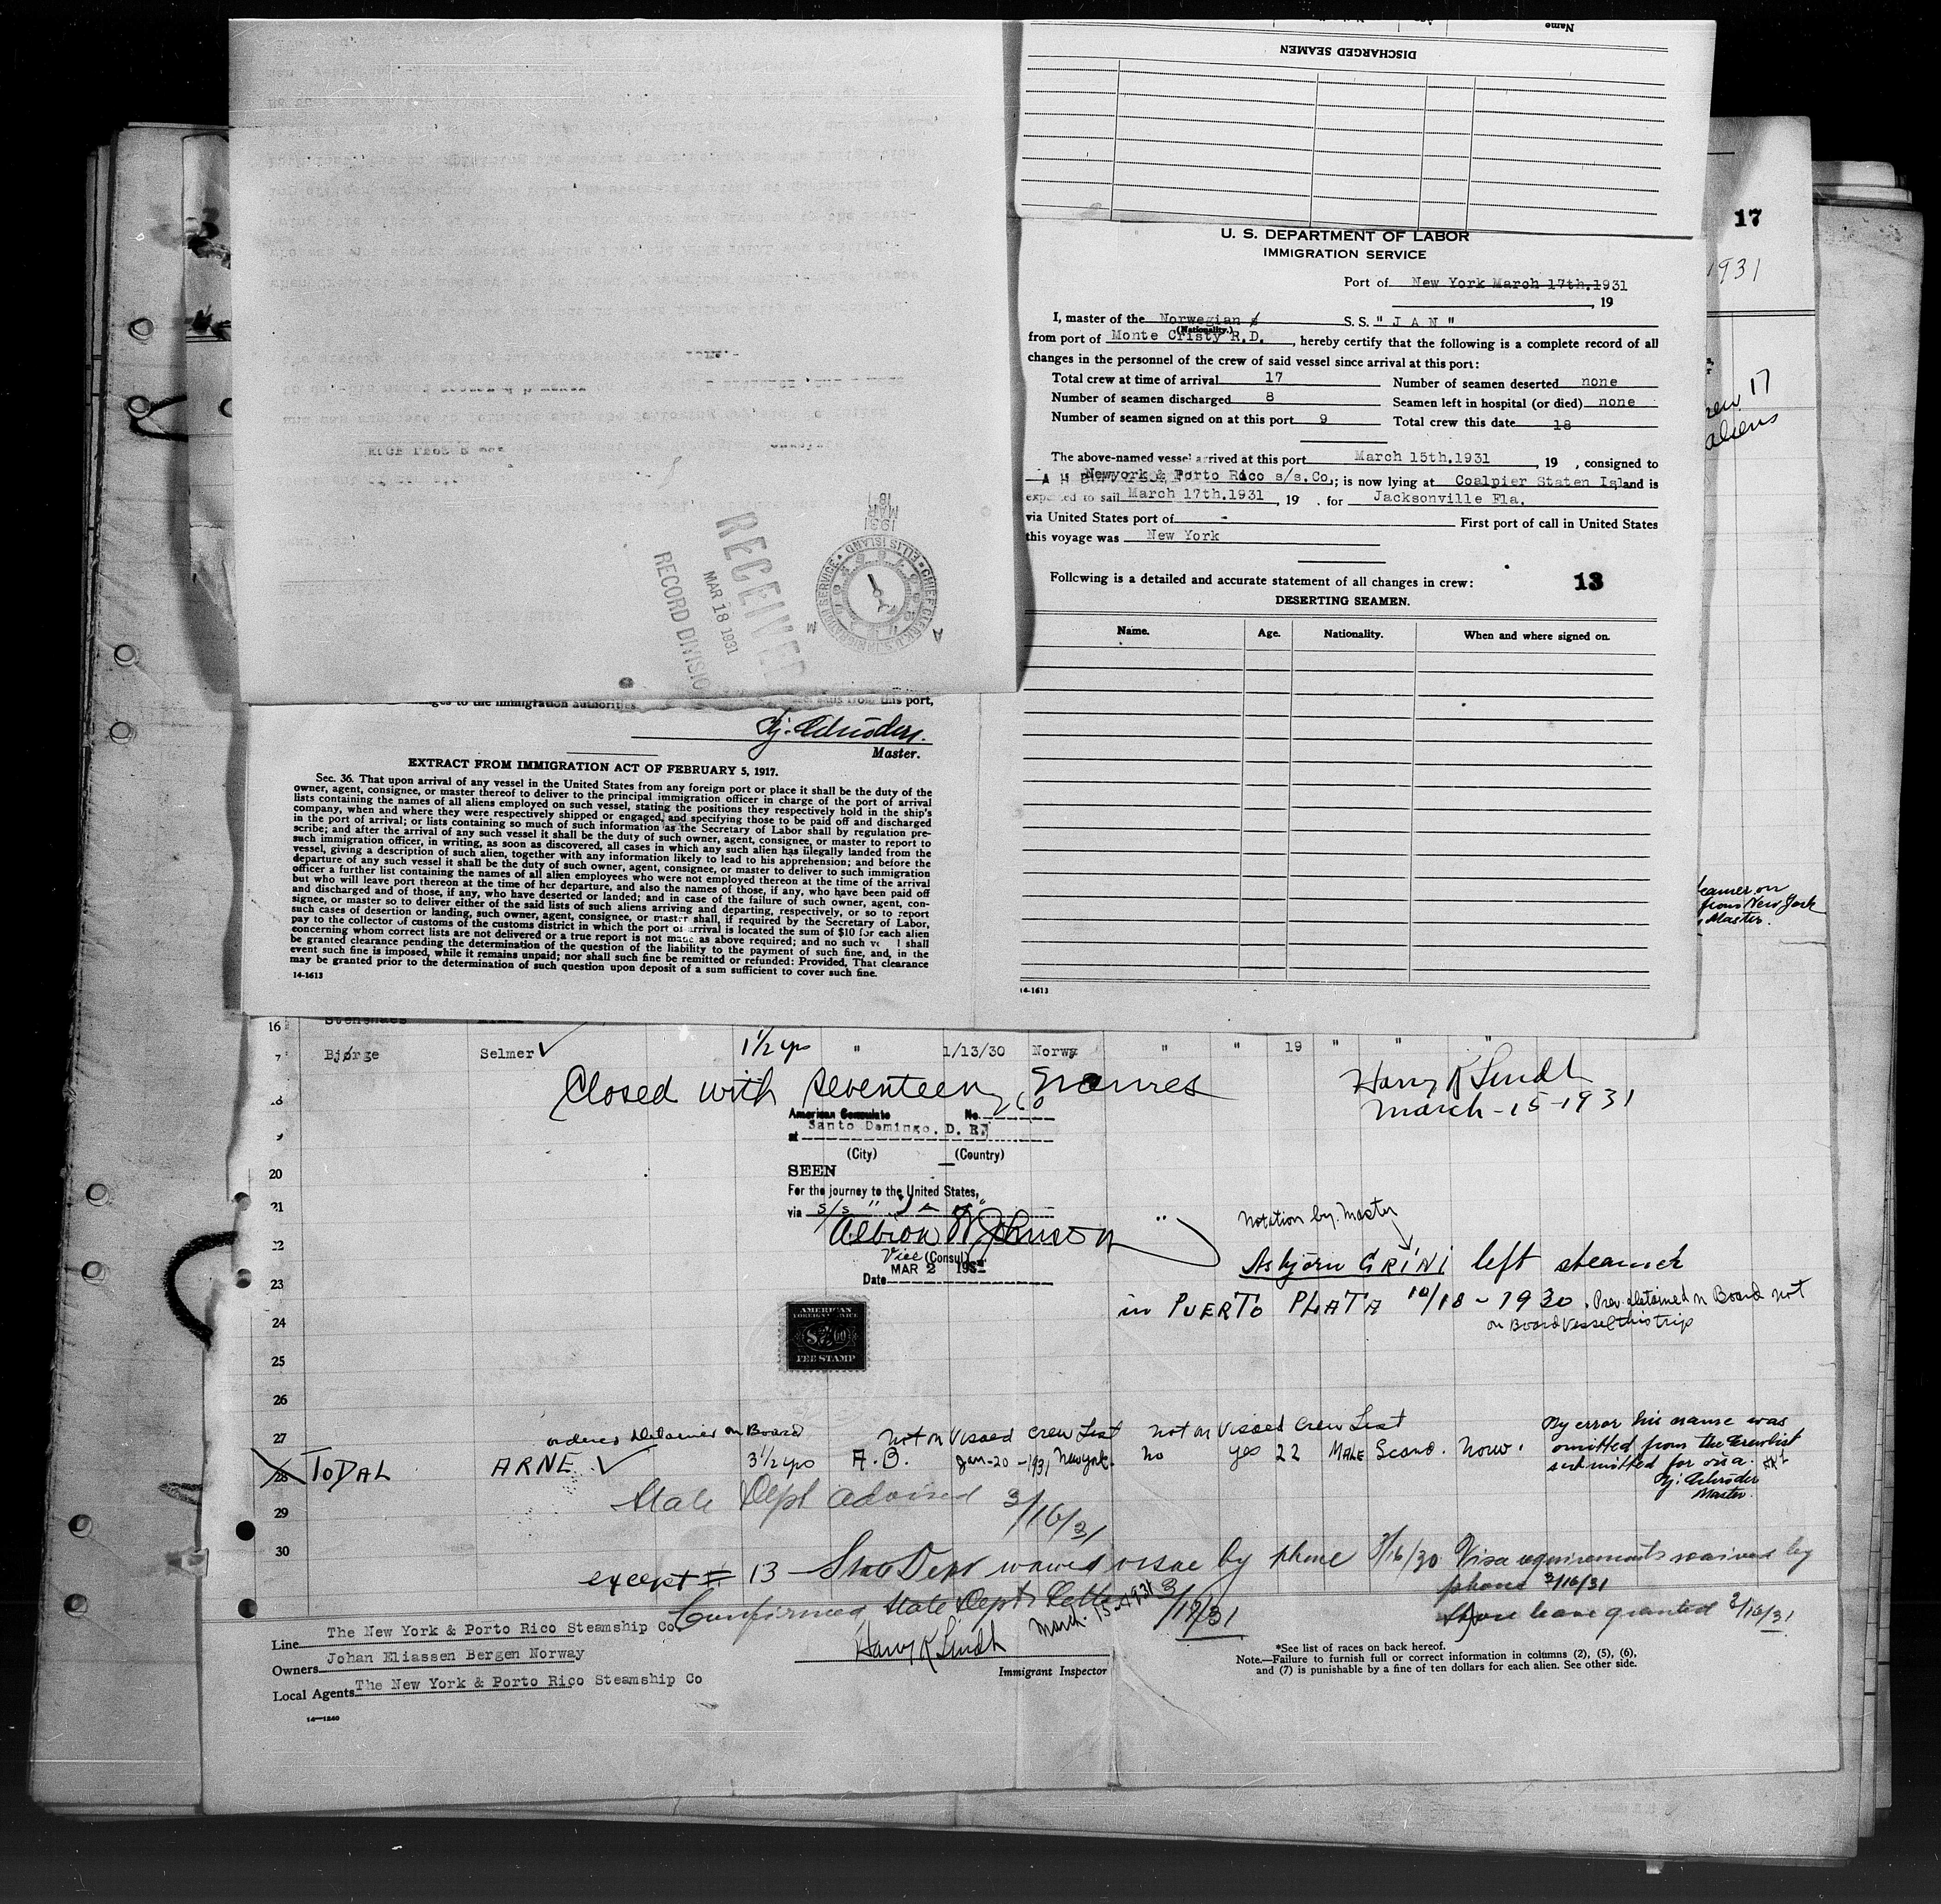 DISCHARGED SEAMEN
Name
17
1931
U. S. DEPARTMENT OF LABOR
IMMIGRATION SERVICE
Port of New York March 17th.1931
, 19
I, master of the Norwegian s S. S. " J A N "
(Nationality.)
from port of Monte Cristy R.D. , hereby certify that the following is a complete record of all
changes in the personnel of the crew of said vessel since arrival at this port:
Total crew at time of arrival 17 Number of seamen deserted none
Number of seamen discharged 8 Seamen left in hospital (or died) none
Number of seamen signed on at this port 9 Total crew this date 18
The above-named vessel arrived at this port March 15th.1931 , 19 , consigned to
Newyork & Porto Rico s/s.Co.; is now lying at Coalpier Staten Island is
expected to sail March 17th.1931 , 19 , for Jacksonville Fla.
via United States port of - First port of call in United States
this voyage was New York
Following is a detailed and accurate statement of all changes in crew: 13
DESERTING SEAMEN.
Name. Age. Nationality. When and where signed on.
14-1613
17
aliens
from New York
Master.
RECEIVED
MAR 18 1931
RECORD DIVISIO
MAR 18 1931
CHIEF CLERK U.S. IMMIGRATION SERVICE • ELLIS ISLAND •
A M
ges to the immigration authorities this port,
Oj. Schröder.
Master.
EXTRACT FROM IMMIGRATION ACT OF FEBRUARY 5, 1917.
Sec. 36. That upon arrival of any vessel in the United States from any foreign port or place it shall be the duty of the
owner, agent, consignee, or master thereof to deliver to the principal immigration officer in charge of the port of arrival
lists containing the names of all aliens employed on such vessel, stating the positions they respectively hold in the ship's
company, when and where they were respectively shipped or engaged, and specifying those to be paid off and discharged
in the port of arrival; or lists containing so much of such information as the Secretary of Labor shall by regulation pre-
scribe; and after the arrival of any such vessel it shall be the duty of such owner, agent, consignee, or master to report to
such immigration officer, in writing, as soon as discovered, all cases in which any such alien has illegally landed from the
vessel, giving a description of such alien, together with any information likely to lead to his apprehension; and before the
departure of any such vessel it shall be the duty of such owner, agent, consignee, or master to deliver to such immigration
officer a further list containing the names of all alien employees who were not employed thereon at the time of the arrival
but who will leave port thereon at the time of her departure, and also the names of those, if any, who have been paid off
and discharged and of those, if any, who have deserted or landed; and in case of the failure of such owner, agent, con-
signee, or master so to deliver either of the said lists of such aliens arriving and departing, respectively, or so to report
such cases of desertion or landing, such owner, agent, consignee, or master shall, if required by the Secretary of Labor,
pay to the collector of customs of the customs district in which the port of arrival is located the sum of $10 for each alien
concerning whom correct lists are not delivered or a true report is not made as above required; and no such ve l shall
be granted clearance pending the determination of the question of the liability to the payment of such fine, and, in the
event such fine is imposed, while it remains unpaid; nor shall such fine be remitted or refunded: Provided, That clearance
may be granted prior to the determination of such question upon deposit of a sum sufficient to cover such fine.
14-1613
16
Bjørge Selmer 1½ yrs " 1/13/30 Norwg " " 19 " " "
Closed with seventeen names Harry K Lindh
March-15-1931
American Consulate No. 260
at Santo Domingo, D. R.
(City) (Country)
SEEN
For the journey to the United States,
via S/S " Jan "
Albion W Johnson
Vice (Consul)
MAR 2
Date
Notation by Master
Asbjörn GRINI left steamer
in PUERTO PLATA 10/18-1930. Prev. detained on Board not
on Board vessel this trip
AMERICAN
FOREIGN SERVICE
FEE STAMP
20
21
22
23
24
25
26
27
ordered detained on Board Not on Visaed Crew List Not on Visaed Crew List
28 TODAL ARNE 3½ yrs A.B. Jan-20-1931 New York. No yes 22 MALE Scand. Norw.
By error his name was
omitted from the Crewlist
submitted for visa.
Oj. Schröder
Master.
State Dept advised 3/16/31
29
30
except # 13 - State Dept waived visae by phone 3/16/30 Visa requirements waived by
phone 3/16/31
Confirmed State Dept's letter 3/17/31
Shore leave granted 3/16/31
Line The New York & Porto Rico Steamship Co.
Owners Johan Eliassen Bergen Norway
Local Agents The New York & Porto Rico Steamship Co
14-1240
Harry K Lindh March 15-1931
Immigrant Inspector
*See list of races on back hereof.
Note.—Failure to furnish full or correct information in columns (2), (5), (6),
and (7) is punishable by a fine of ten dollars for each alien. See other side.